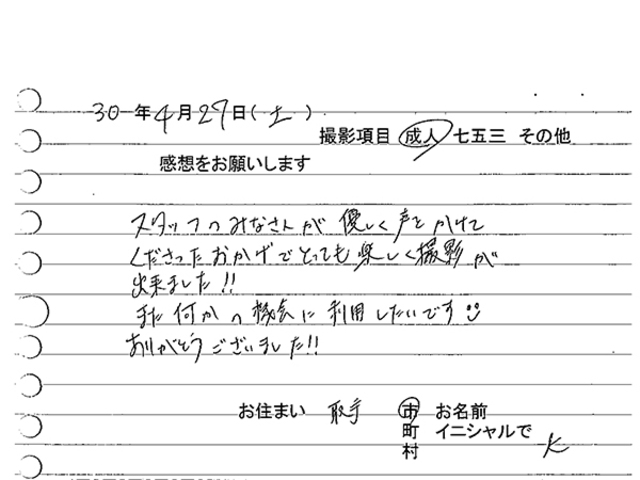 30年4月27日(土)
撮影項目 成人 七五三 その他
感想をお願いします
スタッフのみなさんが優しく声をかけて
くださったおかげでとっても楽しく撮影が
出来ました!!
また何かの機会に利用したいです
ありがとうございました!!
お住まい 取手 市 お名前
町 イニシャルで
村 K